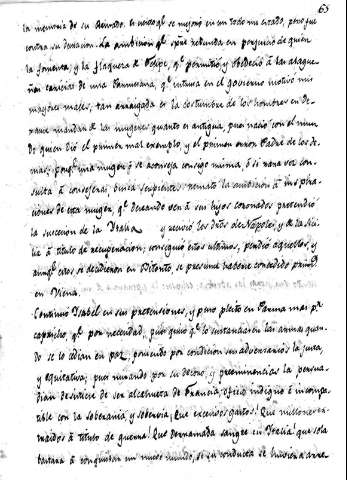 65
la memoria de su Reinado. es verdad q.e se mejoró en en todo mi criado, pero fue
contra su duracion. La ambicion q.e sp̃re redunda en perjuicio de quien
la fomenta, y la flaqueza de Felipe, q.e permitió, y obedeció à las
caricias de una Parmesana, q.e intrusa en el govierno motivó mis
mayores males, tan arraigada es la costumbre de los hombres en De-
jarse mandar de las mugeres quanto es antigua, pues nació con el mun
do quien dió el primer mal exemplo, y el primer error Padre de los de
mas; porq.e una muger ó se aconseja consigo misma, ó si rara vez con-
sulta
ciones de esta muger, q.e deseando ver à sus hijos coronados pretendió
la succesion de la Italia y movió los dros de Napoles, y de la Sici
lia à titulo de recuperacion; consiguió estos ultimos, perdió aquellos, y
aunq.e estos se decidieron en Bitonto, se presume haberse concedido
en Viena.
Continuó Isabel en sus pretensiones, y puso pleito en Parma mas p.r
capricho, q.e por necesidad, pues quiso q.e lo sustanciaran las armas quan-
do se lo cedian en paz, poniendo por condicion sus adversarios la justa,
y equitativa; pues mirando por su decoro, y preeminencias la persua-
dian desistiese de ser alcahueta de Francia, oficio indigno è incompa-
tible con la soberania, y sobervia; Que excesivos gastos! Que millones ex-
traidos à titulo de guerra! Que derramada sangre en Italia! que sola
bastara à conquistar un nuevo mundo, si su conducta se huviera arre-